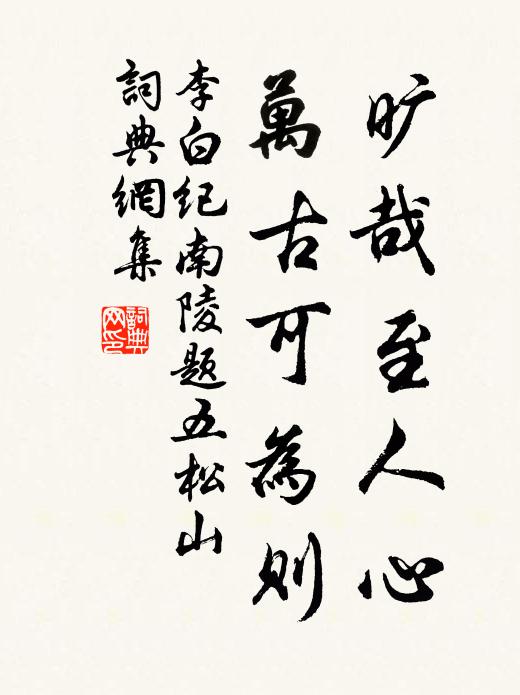 旷哉至人心
萬古可為则
李白纪南陵题五松山
詞典網集
詞典网印